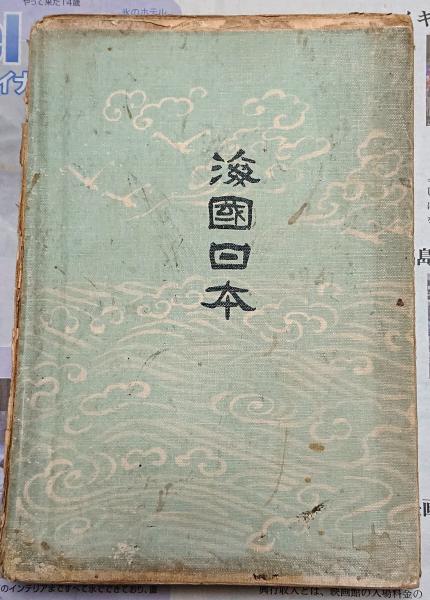 海國日本
やって来た14歳
氷のホテル
イナ
島
のインテリアすべて氷でできており、誰
興行収入とは、映画館の入場料金の